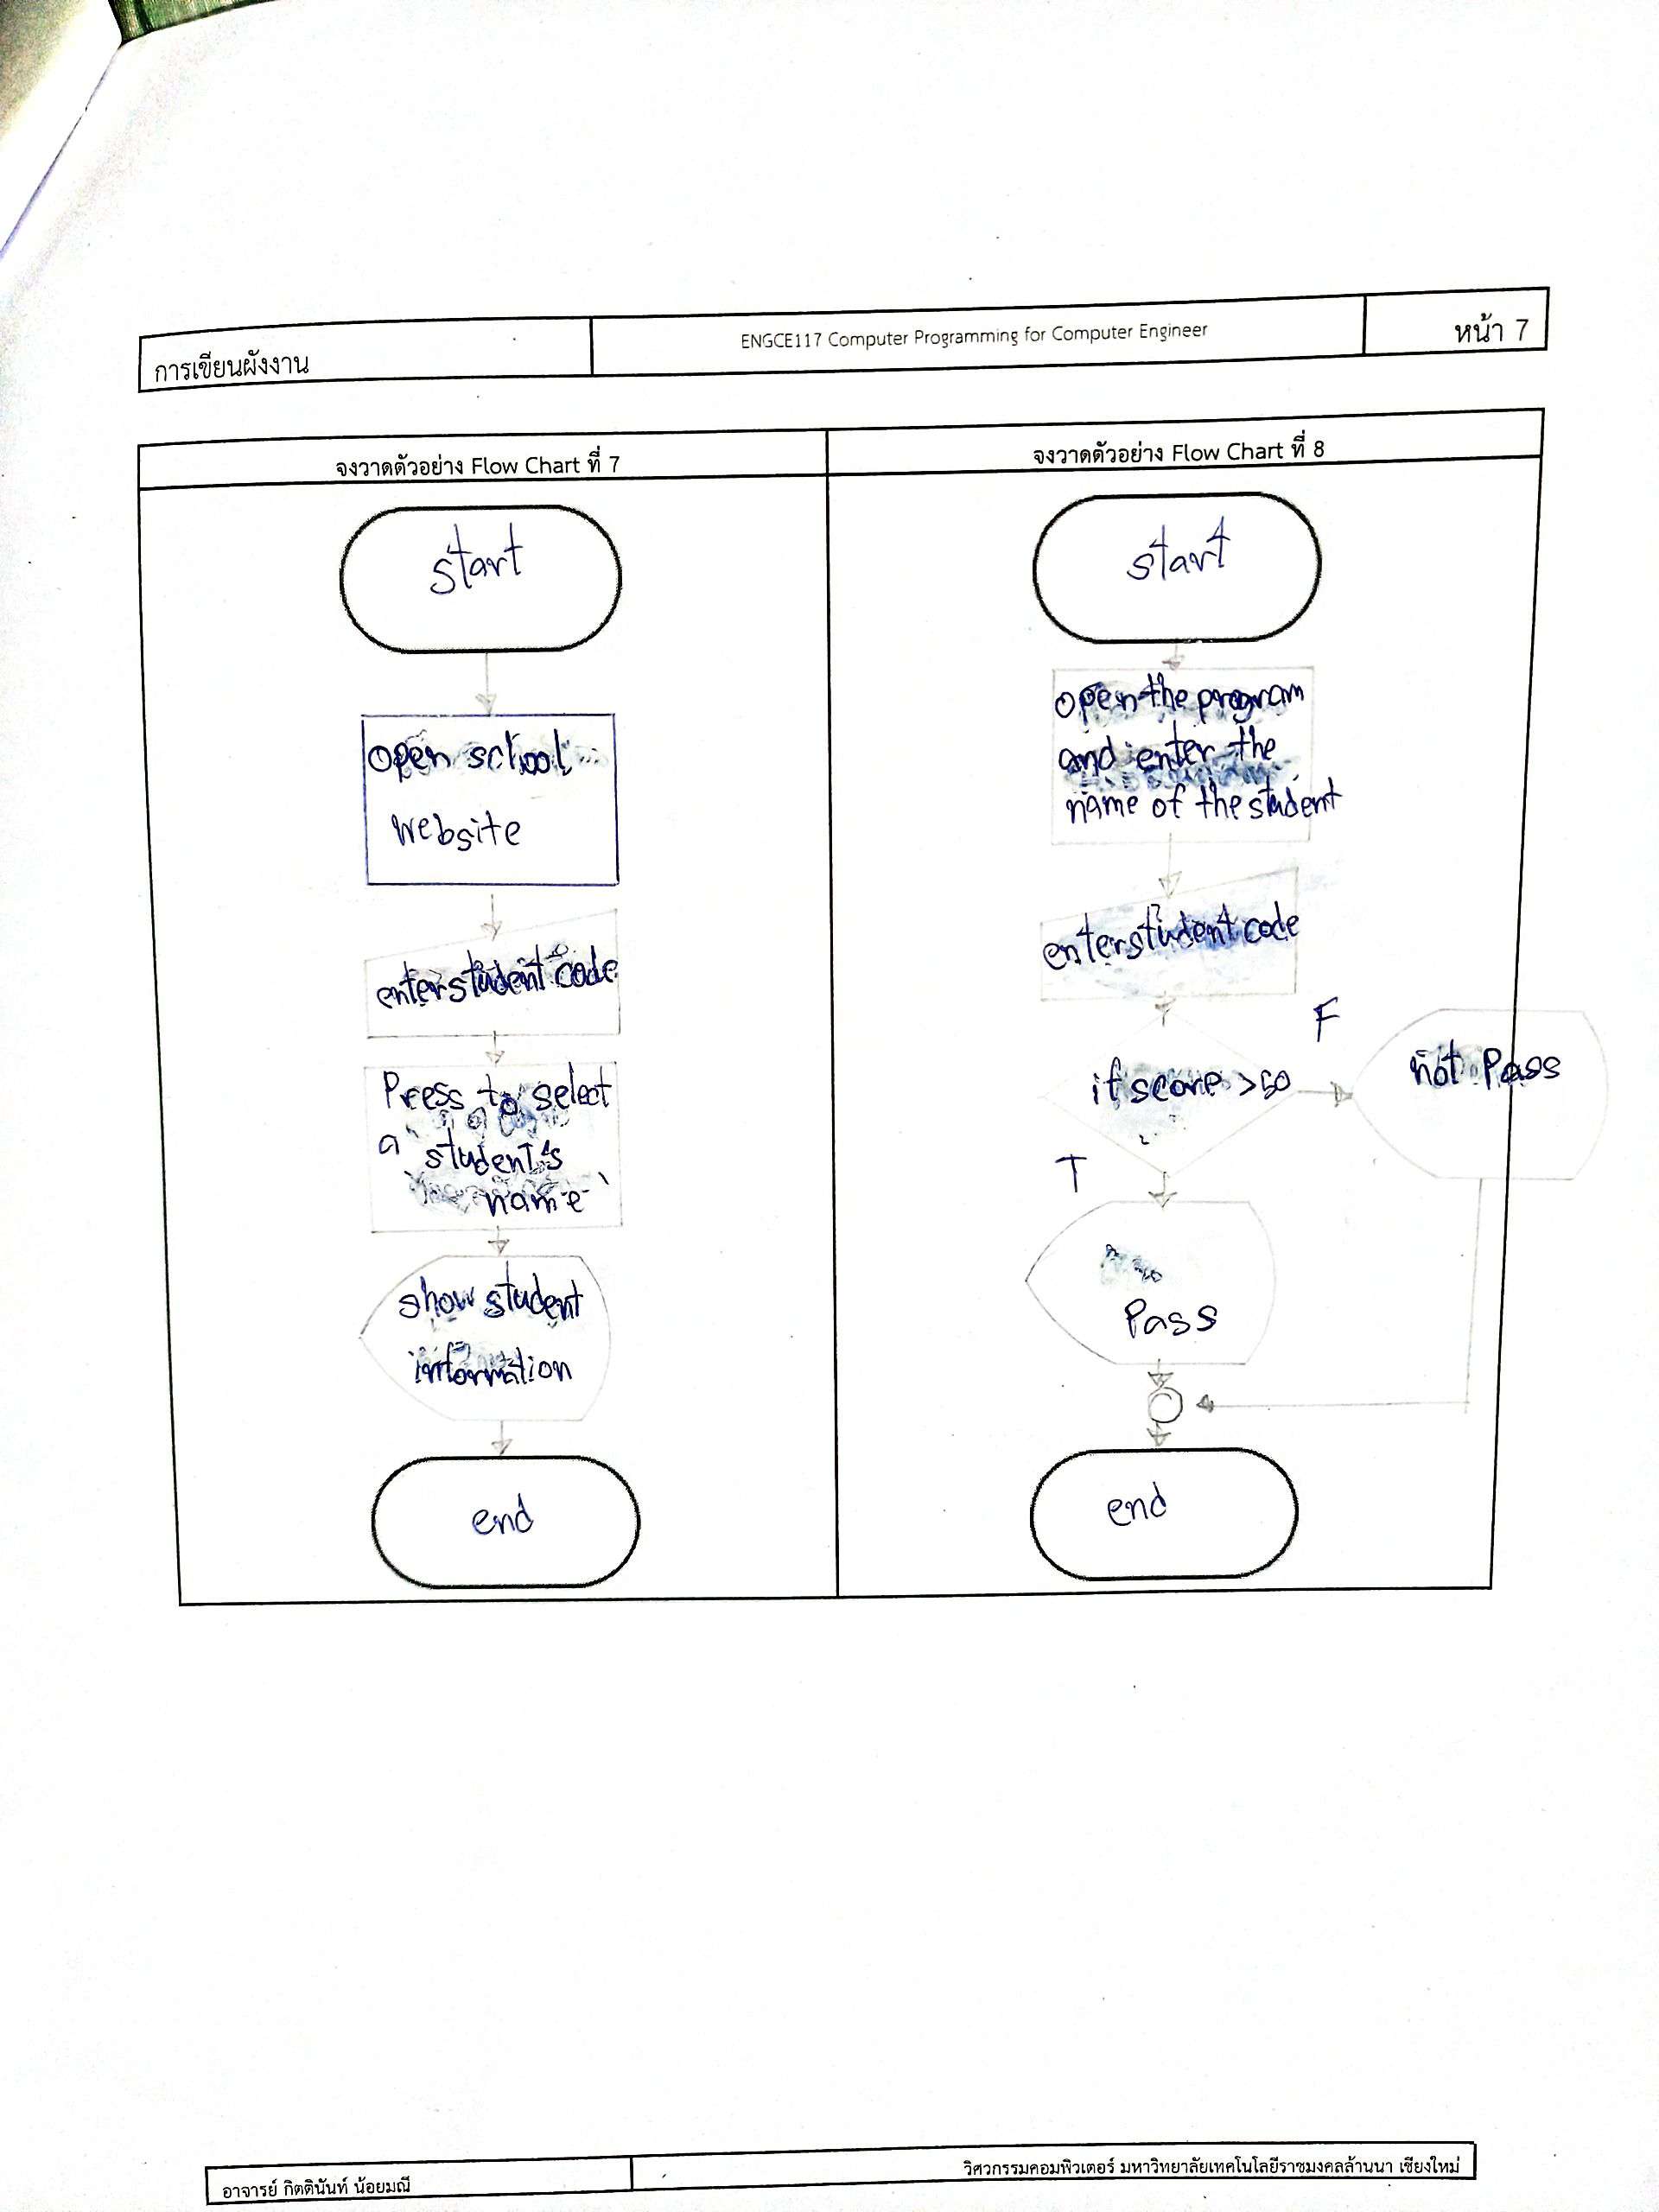 การเขียนผังงาน
ENGCE117 Computer Programming for Computer Engineer
หน้า 7
จงวาดตัวอย่าง Flow Chart ที่ 7
start
open school
website
enter student code
Press to select
a student's
name
show student
information
end
จงวาดตัวอย่าง Flow Chart ที่ 8
start
open the program
and enter the
name of the student
enter student code
if score >50
F
not Pass
T
Pass
end
อาจารย์ กิตตินันท์ น้อยมณี
วิศวกรรมคอมพิวเตอร์ มหาวิทยาลัยเทคโนโลยีราชมงคลล้านนา เชียงใหม่